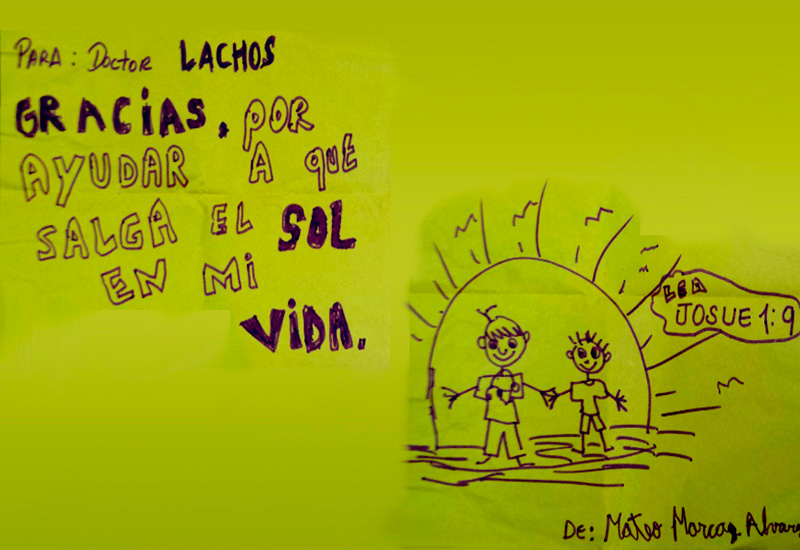 PARA: Doctor LACHOS
GRACIAS, POR
AYUDAR A QUE
SALGA EL SOL
EN MI
VIDA.
LEA
JOSUE 1:9
DE: Mateo Marcas Alvarez